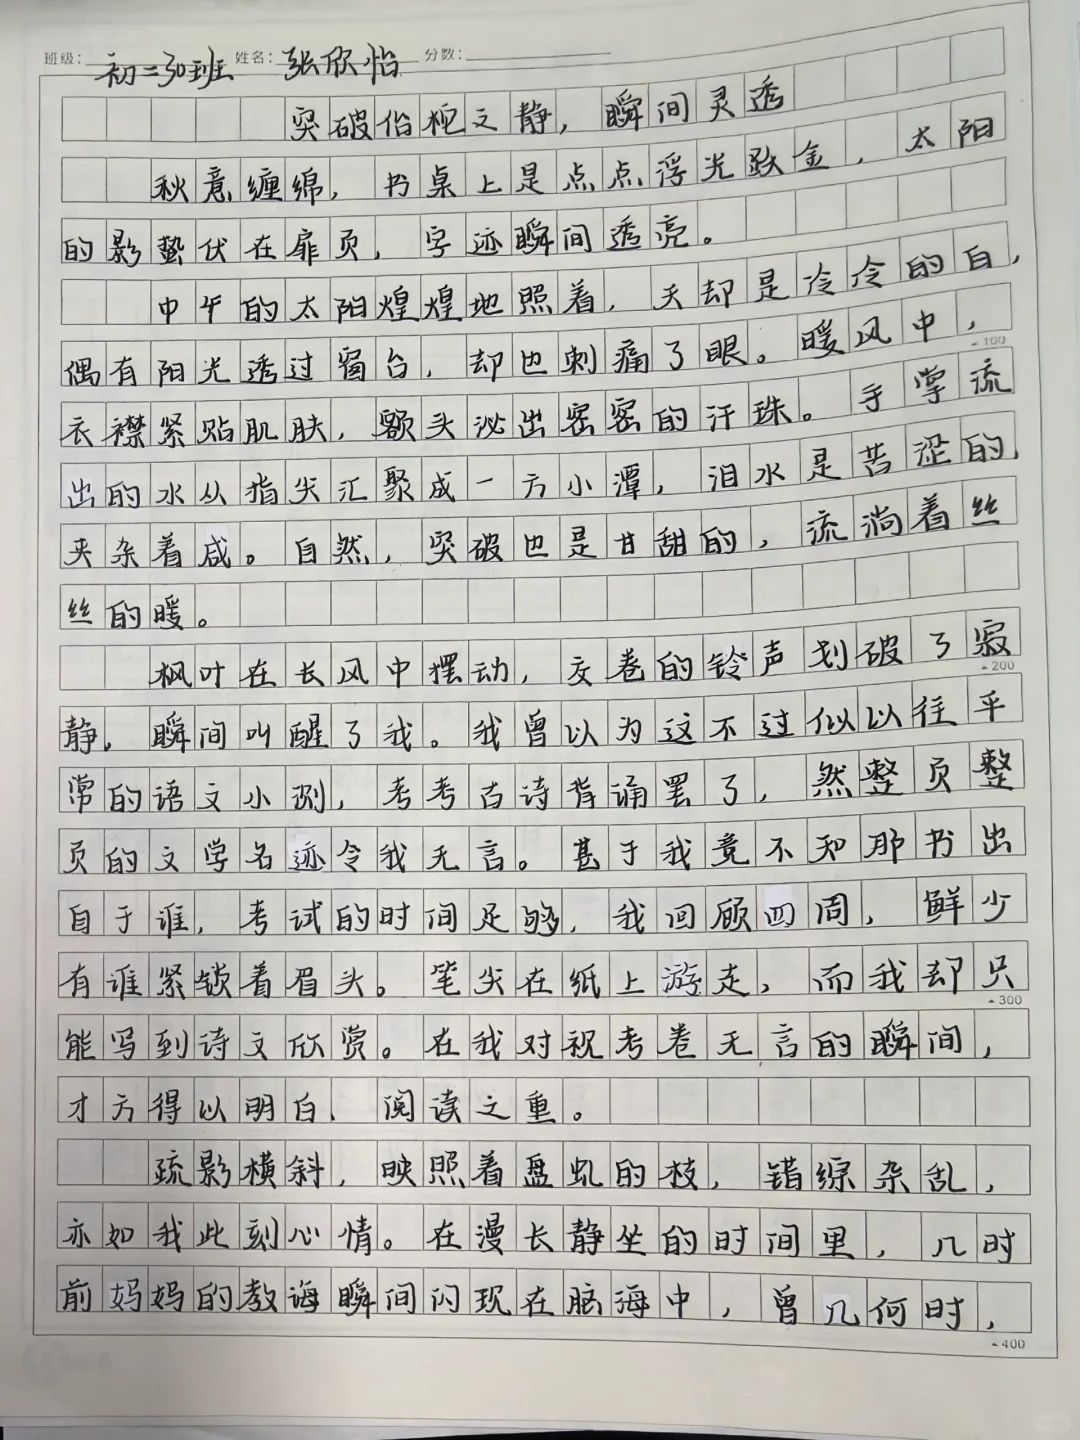 班级： 初二30班 姓名： 张欣怡 分数：
突破俗桎之静，瞬间灵透
秋意缠绵，书桌上是点点浮光跃金，太阳
的影蛰伏在扉页，字迹瞬间透亮。
中午的太阳煌煌地照着，天却是冷冷的白，
偶有阳光透过窗台，却也刺痛了眼。暖风中，
100
衣襟紧贴肌肤，额头泌出密密的汗珠。手掌流
出的水从指尖汇聚成一方小潭，泪水是苦涩的，
夹杂着咸。自然，突破也是甘甜的，流淌着丝
丝的暖。
枫叶在长风中摆动，交卷的铃声划破了寂
200
静。瞬间叫醒了我。我曾以为这不过似以往平
常的语文小测，考考古诗背诵罢了，然整页整
页的文学名迹令我无言。甚于我竟不知那书出
自于谁，考试的时间足够，我回顾四周，鲜少
有谁紧锁着眉头。笔尖在纸上游走，而我却只
300
能写到诗文欣赏。在我对视考卷无言的瞬间，
才方得以明白，阅读之重。
疏影横斜，映照着盘虬的枝，错综杂乱，
亦如我此刻心情。在漫长静坐的时间里，几时
前妈妈的教诲瞬间闪现在脑海中，曾几何时，
400